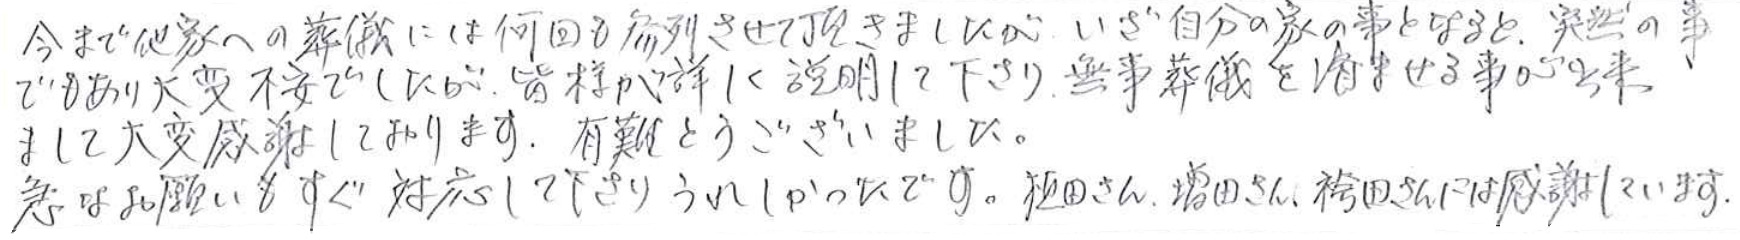 今まで他家への葬儀には何回も参列させて頂きましたが、いざ自分の家の事となると、突然の事
でもあり大変不安でしたが、皆様が詳しく説明して下さり、無事葬儀を済ませる事が出来
まして大変感謝しております。有難とうございました。
急なお願いもすぐ対応して下さりうれしかったです。植田さん、増田さん、袴田さんには感謝しています。